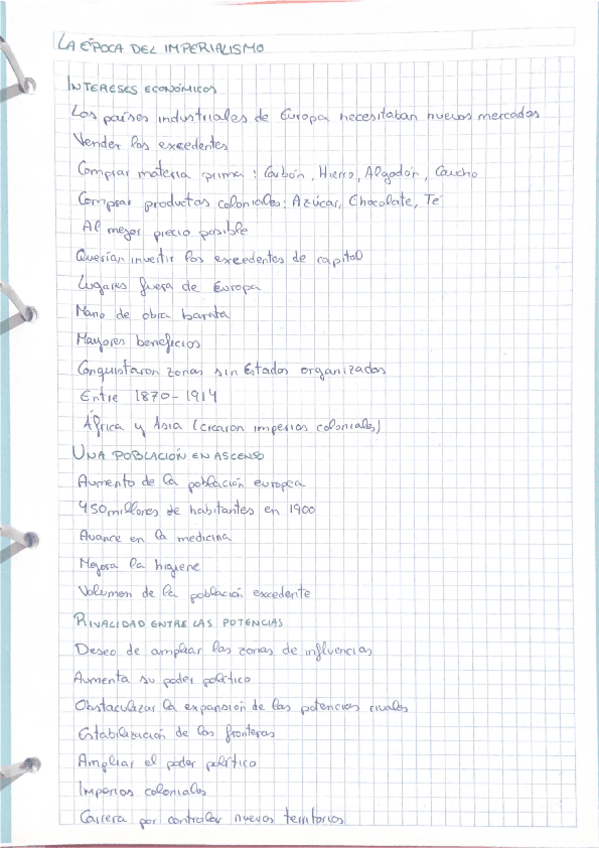 LA ÉPOCA DEL IMPERIALISMO
INTERESES ECONÓMICOS
Los países industriales de Europa necesitaban nuevos mercados
Vender los excedentes
Comprar materia prima: Carbón, Hierro, Algodón, Caucho
Comprar productos coloniales: Azúcar, Chocolate, Té
Al mejor precio posible
Querían invertir los excedentes de capital
Lugares fuera de Europa
Mano de obra barata
Mayores beneficios
Conquistaron zonas sin Estados organizados
Entre 1870-1914
África y Asia (crearon imperios coloniales)
UNA POBLACIÓN EN ASCENSO
Aumento de la población europea
450 millones de habitantes en 1900
Avance en la medicina
Mejora la higiene
Volumen de la población excedente
RIVALIDAD ENTRE LAS POTENCIAS
Deseo de ampliar las zonas de influencias
Aumenta su poder político
Obstaculizar la expansión de las potencias rivales
Estabilización de las fronteras
Ampliar el poder político
Imperios coloniales
Carrera por controlar nuevos territorios